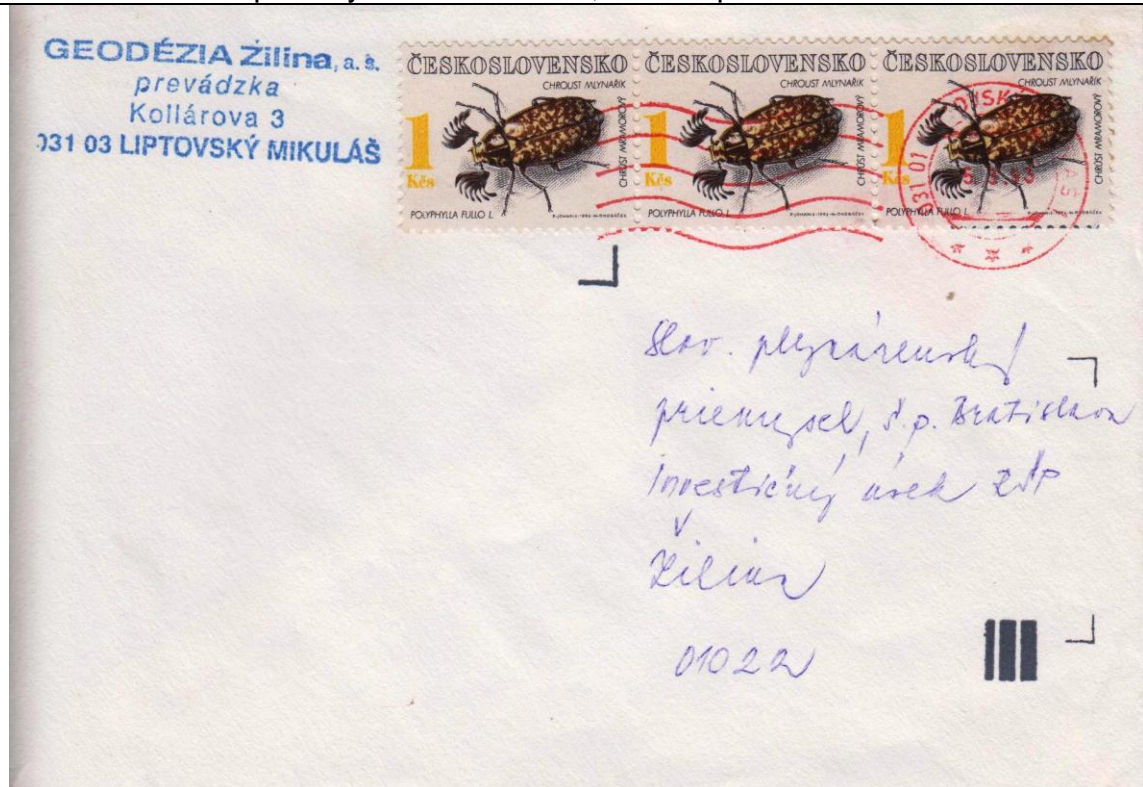 GEODÉZIA Žilina, a. s.
prevádzka
Kollárova 3
031 03 LIPTOVSKÝ MIKULÁŠ
ČESKOSLOVENSKO
CHROUST MLYNAŘÍK
CHRÚST MRAMOROVÝ
1
Kčs
POLYPHYLLA FULLO L.
ČESKOSLOVENSKO
CHROUST MLYNAŘÍK
CHRÚST MRAMOROVÝ
1
Kčs
POLYPHYLLA FULLO L.
ČESKOSLOVENSKO
CHROUST MLYNAŘÍK
CHRÚST MRAMOROVÝ
1
Kčs
POLYPHYLLA FULLO L.
031 01
Slov. plynárenský
priemysel, š.p. Bratislava
Investičný úsek ZŠP
Žilina
01022